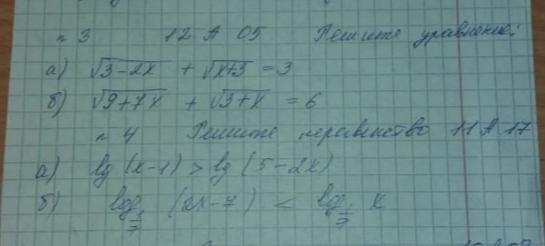 n 3 12 А 05 Решите уравнение:
а) √3-2x + √x+3 = 3
б) √9+7x + √3+x = 6
n 4 Решите неравенство 11 А 17
а) lg (x-1) > lg (5-2x)
б) log (2x-7) < log x